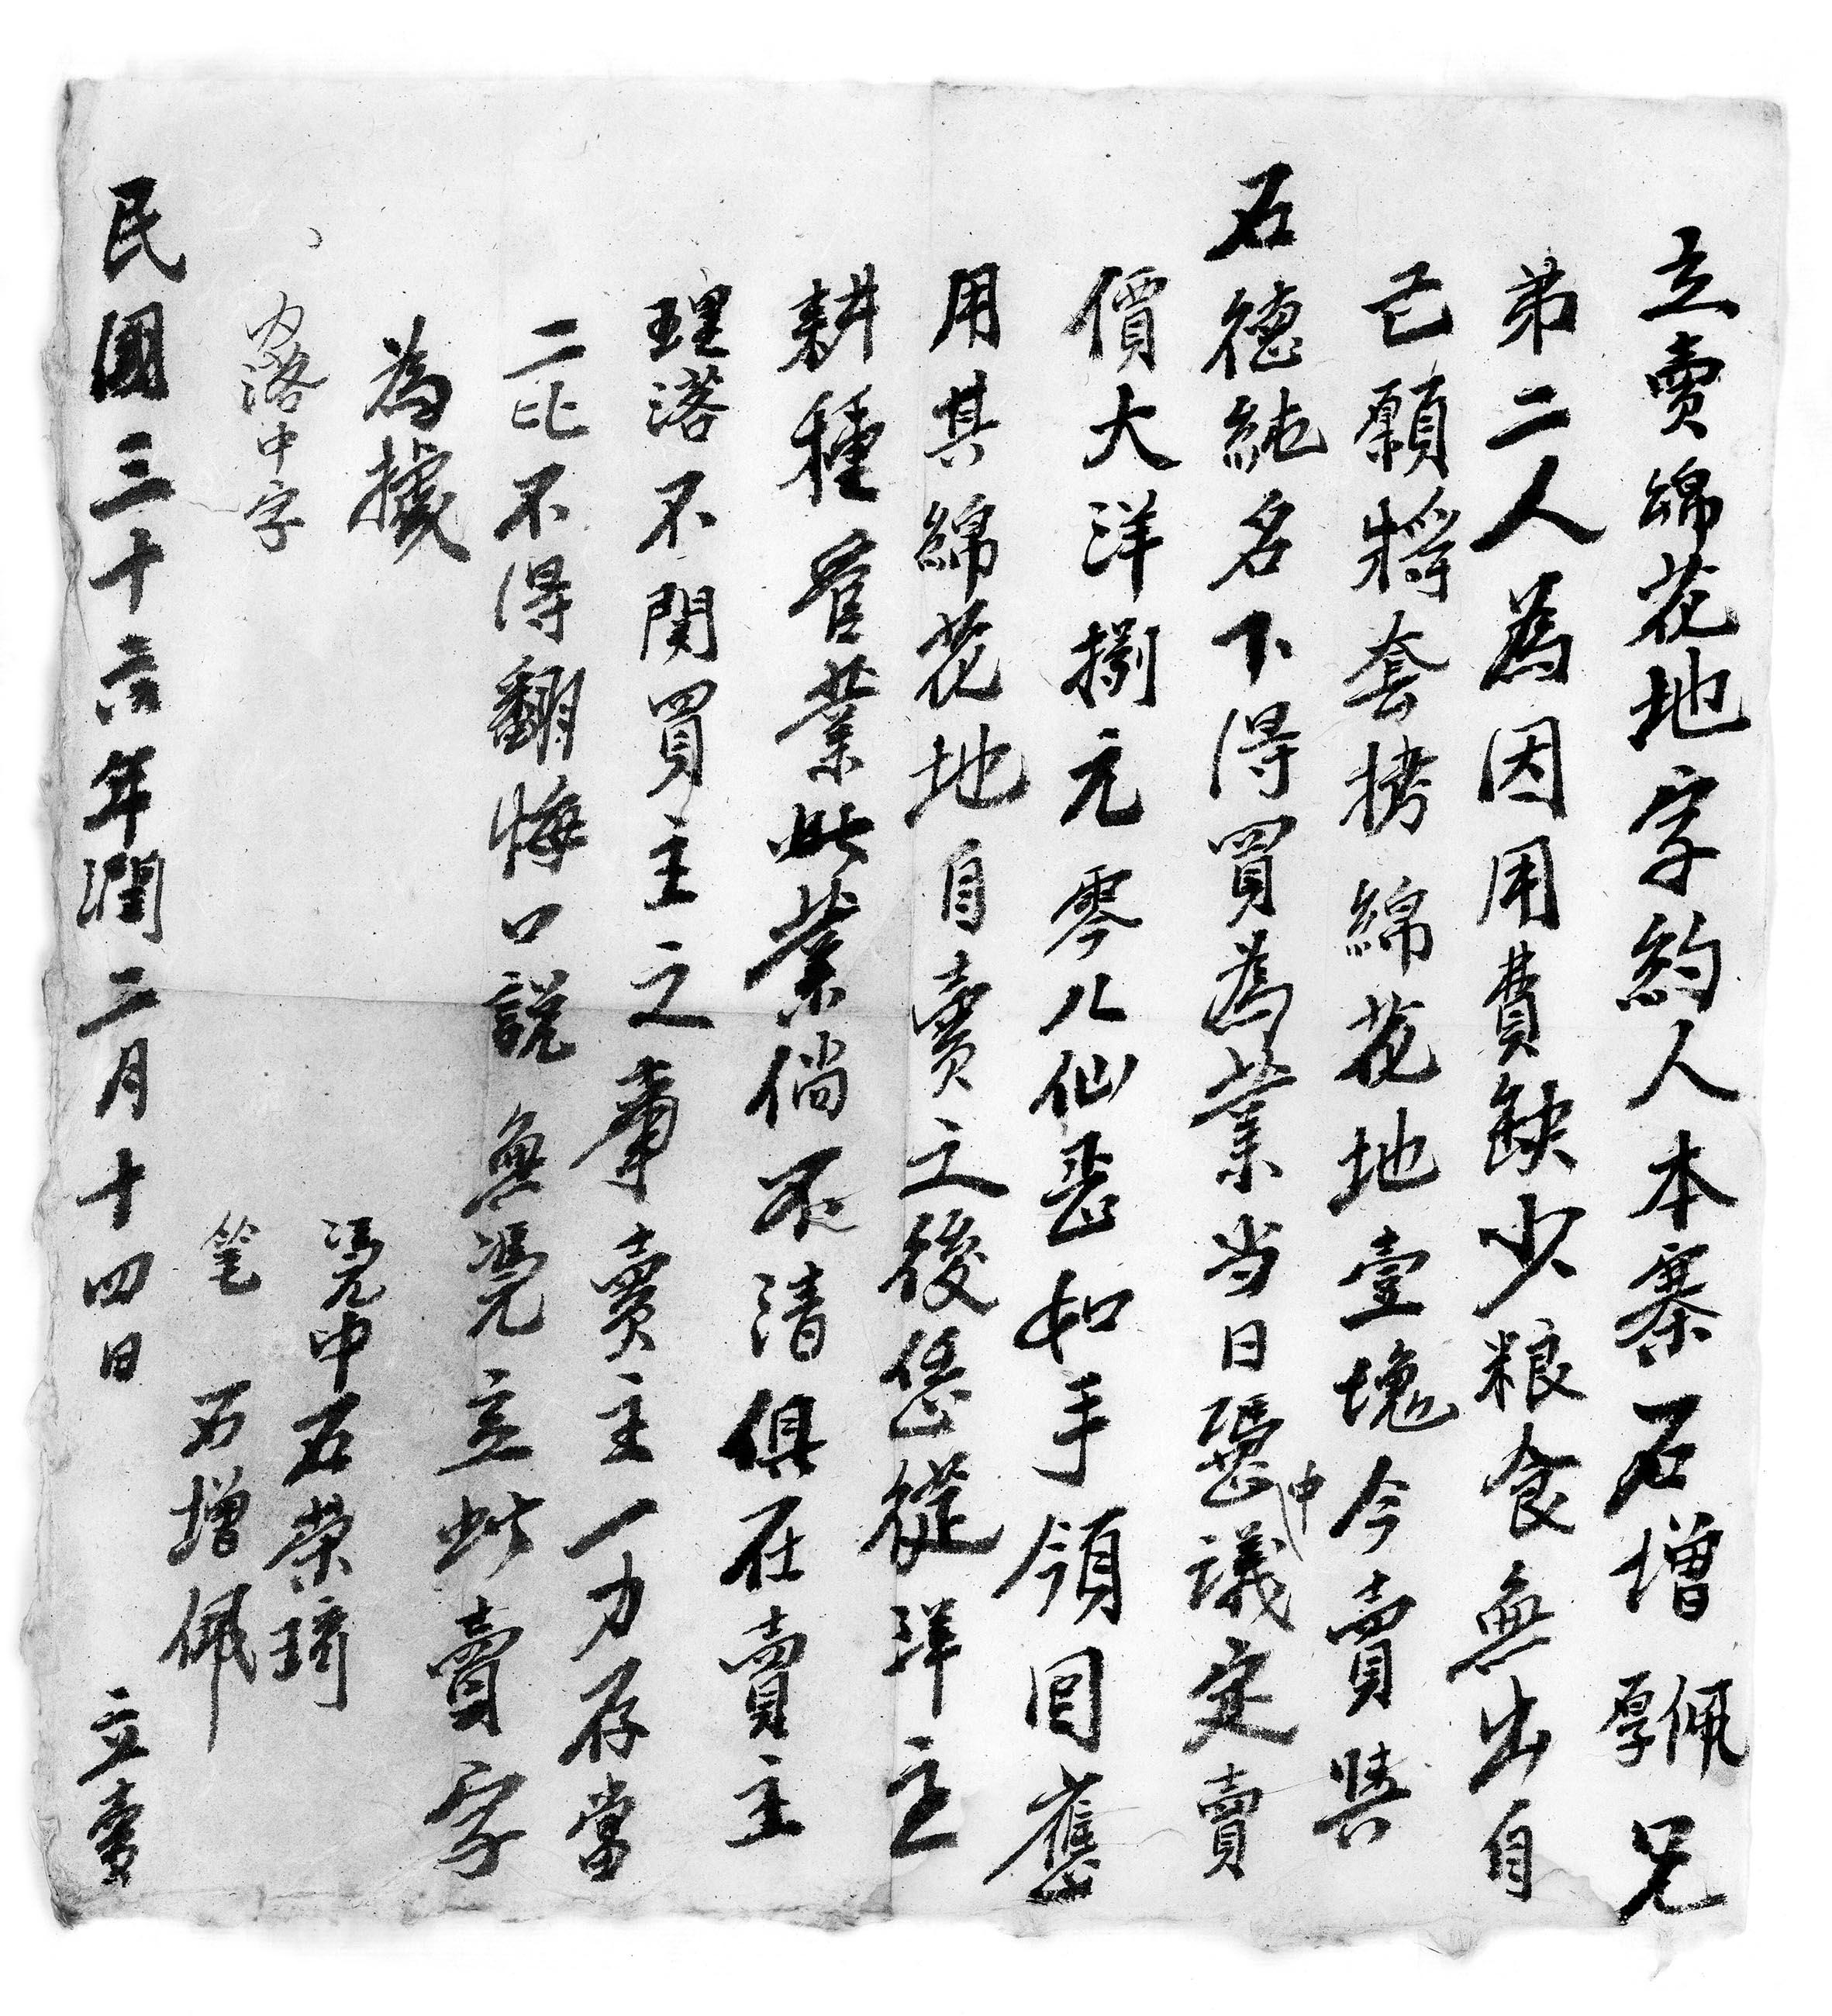 立賣綿花地字約人本寨石增佩厚兄
弟二人為因用費缺少粮食無出自
己願將套拷綿花地壹塊今賣與
石德純名下得買為業当日憑中議定賣
價大洋捌元零八仙甚如手領囬舊
用其綿花地自賣之後恁從洋主
耕種管業此業倘不清俱在賣主
理落不関買主之事賣主一力存當
二比不得翻悔口説無凴立此賣字
為據
凴中石荣琦
内落中字
筆 石增佩
民國三十六年潤二月十四日 立賣